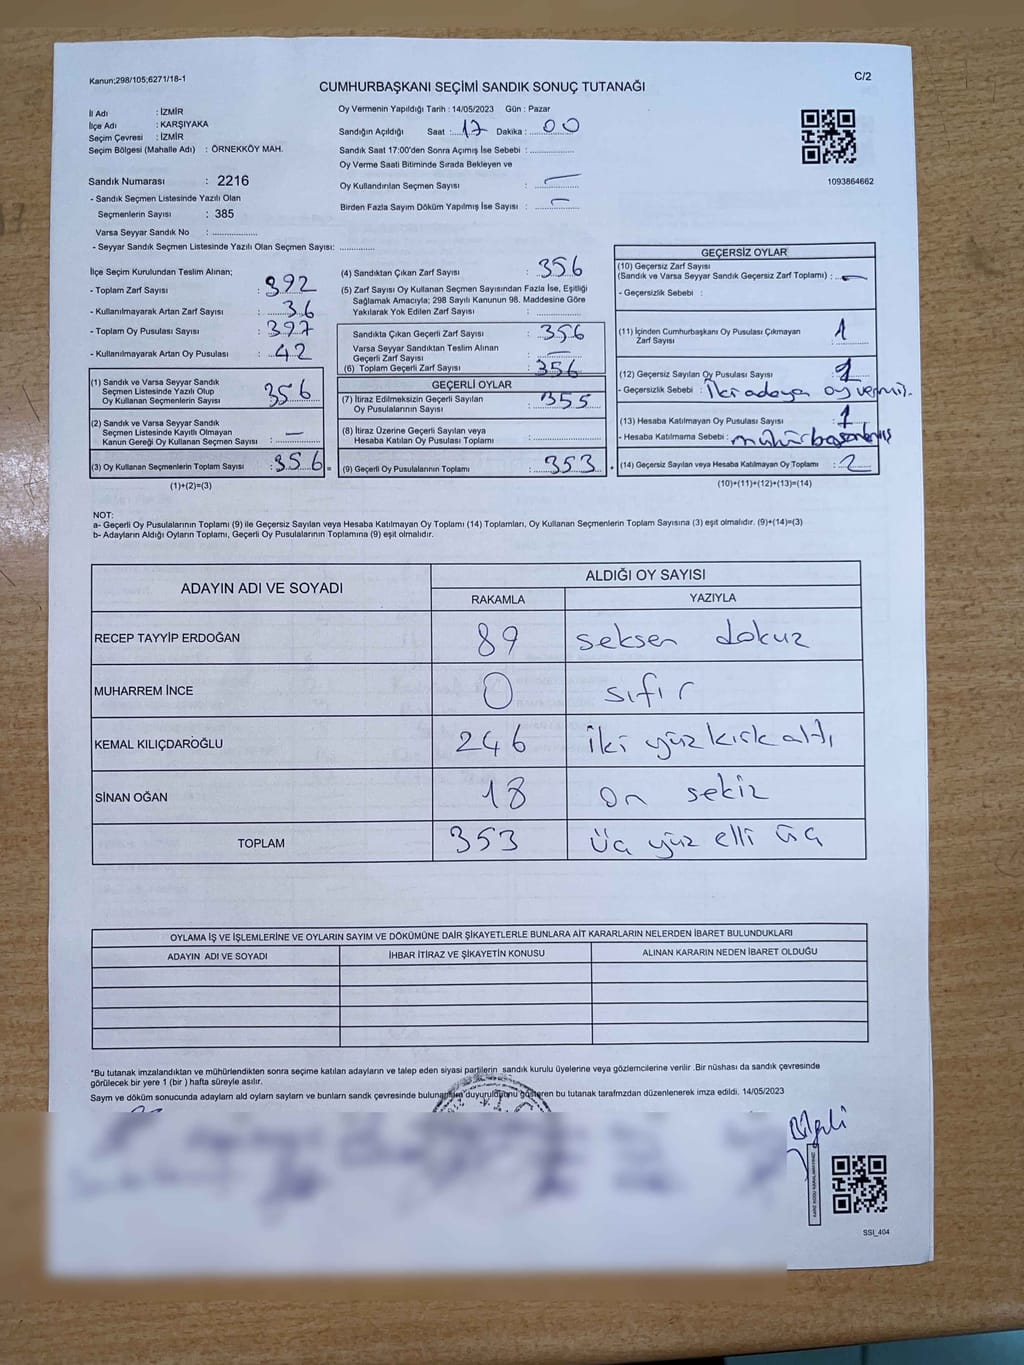 Kanun;298/105;6271/18-1
C/2
CUMHURBAŞKANI SEÇİMİ SANDIK SONUÇ TUTANAĞI
İl Adı : İZMİR
İlçe Adı : KARŞIYAKA
Seçim Çevresi : İZMİR
Seçim Bölgesi (Mahalle Adı) : ÖRNEKKÖY MAH.
Sandık Numarası : 2216
- Sandık Seçmen Listesinde Yazılı Olan
Seçmenlerin Sayısı : 385
Varsa Seyyar Sandık No :
- Seyyar Sandık Seçmen Listesinde Yazılı Olan Seçmen Sayısı:
Oy Vermenin Yapıldığı Tarih : 14/05/2023 Gün : Pazar
Sandığın Açıldığı Saat : 17 Dakika : 00
Sandık Saat 17:00'den Sonra Açımış İse Sebebi :
Oy Verme Saati Bitiminde Sırada Bekleyen ve
Oy Kullandırılan Seçmen Sayısı : —
Birden Fazla Sayım Döküm Yapılmış İse Sayısı : —
1093864662
İlçe Seçim Kurulundan Teslim Alınan;
- Toplam Zarf Sayısı : 392
- Kullanılmayarak Artan Zarf Sayısı : 36
- Toplam Oy Pusulası Sayısı : 397
- Kullanılmayarak Artan Oy Pusulası : 42
(1) Sandık ve Varsa Seyyar Sandık
Seçmen Listesinde Yazılı Olup
Oy Kullanan Seçmenlerin Sayısı : 356
(2) Sandık ve Varsa Seyyar Sandık
Seçmen Listesinde Kayıtlı Olmayan
Kanun Gereği Oy Kullanan Seçmen Sayısı : —
(3) Oy Kullanan Seçmenlerin Toplam Sayısı : 356
(1)+(2)=(3)
(4) Sandıktan Çıkan Zarf Sayısı : 356
(5) Zarf Sayısı Oy Kullanan Seçmen Sayısından Fazla İse, Eşitliği
Sağlamak Amacıyla; 298 Sayılı Kanunun 98. Maddesine Göre
Yakılarak Yok Edilen Zarf Sayısı :
Sandıkta Çıkan Geçerli Zarf Sayısı : 356
Varsa Seyyar Sandıktan Teslim Alınan
Geçerli Zarf Sayısı : —
(6) Toplam Geçerli Zarf Sayısı : 356
GEÇERLİ OYLAR
(7) İtiraz Edilmeksizin Geçerli Sayılan
Oy Pusulalarının Sayısı : 355
(8) İtiraz Üzerine Geçerli Sayılan veya
Hesaba Katılan Oy Pusulası Toplamı :
(9) Geçerli Oy Pusulalarının Toplamı : 353
GEÇERSİZ OYLAR
(10) Geçersiz Zarf Sayısı
(Sandık ve Varsa Seyyar Sandık Geçersiz Zarf Toplamı) : —
- Geçersizlik Sebebi :
(11) İçinden Cumhurbaşkanı Oy Pusulası Çıkmayan
Zarf Sayısı : 1
(12) Geçersiz Sayılan Oy Pusulası Sayısı :
- Geçersizlik Sebebi : İki adaya oy vermiş.
(13) Hesaba Katılmayan Oy Pusulası Sayısı : 1
- Hesaba Katılmama Sebebi :
(14) Geçersiz Sayılan veya Hesaba Katılmayan Oy Toplamı : 2
(10)+(11)+(12)+(13)=(14)
NOT:
a- Geçerli Oy Pusulalarının Toplamı (9) ile Geçersiz Sayılan veya Hesaba Katılmayan Oy Toplamı (14) Toplamları, Oy Kullanan Seçmenlerin Toplam Sayısına (3) eşit olmalıdır. (9)+(14)=(3)
b- Adayların Aldığı Oyların Toplamı, Geçerli Oy Pusulalarının Toplamına (9) eşit olmalıdır.
ADAYIN ADI VE SOYADI ALDIĞI OY SAYISI
RAKAMLA YAZIYLA
RECEP TAYYİP ERDOĞAN 89 seksen dokuz
MUHARREM İNCE 0 sıfır
KEMAL KILIÇDAROĞLU 246 iki yüz kırk altı
SİNAN OĞAN 18 on sekiz
TOPLAM 353 üç yüz elli üç
OYLAMA İŞ VE İŞLEMLERİNE VE OYLARIN SAYIM VE DÖKÜMÜNE DAİR ŞİKAYETLERLE BUNLARA AİT KARARLARIN NELERDEN İBARET BULUNDUKLARI
ADAYIN ADI VE SOYADI İHBAR İTİRAZ VE ŞİKAYETİN KONUSU ALINAN KARARIN NEDEN İBARET OLDUĞU
*Bu tutanak imzalandıktan ve mühürlendikten sonra seçime katılan adayların ve talep eden siyasi partilerin sandık kurulu üyelerine veya gözlemcilerine verilir .Bir nüshası da sandık çevresinde
görülecek bir yere 1 (bir ) hafta süreyle asılır.
Sayım ve döküm sonucunda adayların ald oyların sayların ve bunların sandk çevresinde bulunanlara duyurulduğunu gösteren bu tutanak tarafmzdan düzenlenerek imza edildi. 14/05/2023
SSI_404